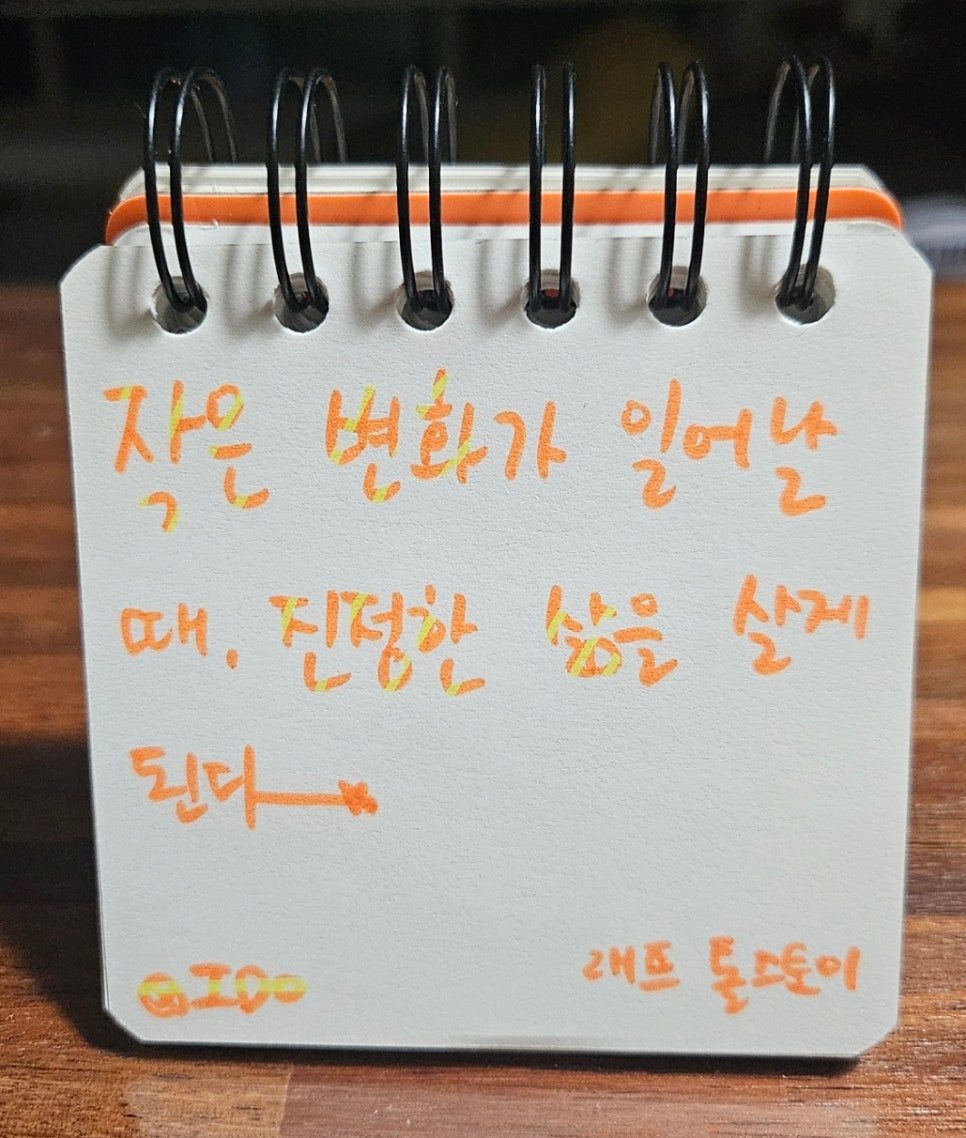 작은 변화가 일어날
때, 진정한 삶을 살게
된다
@IDo
래프 톨스토이